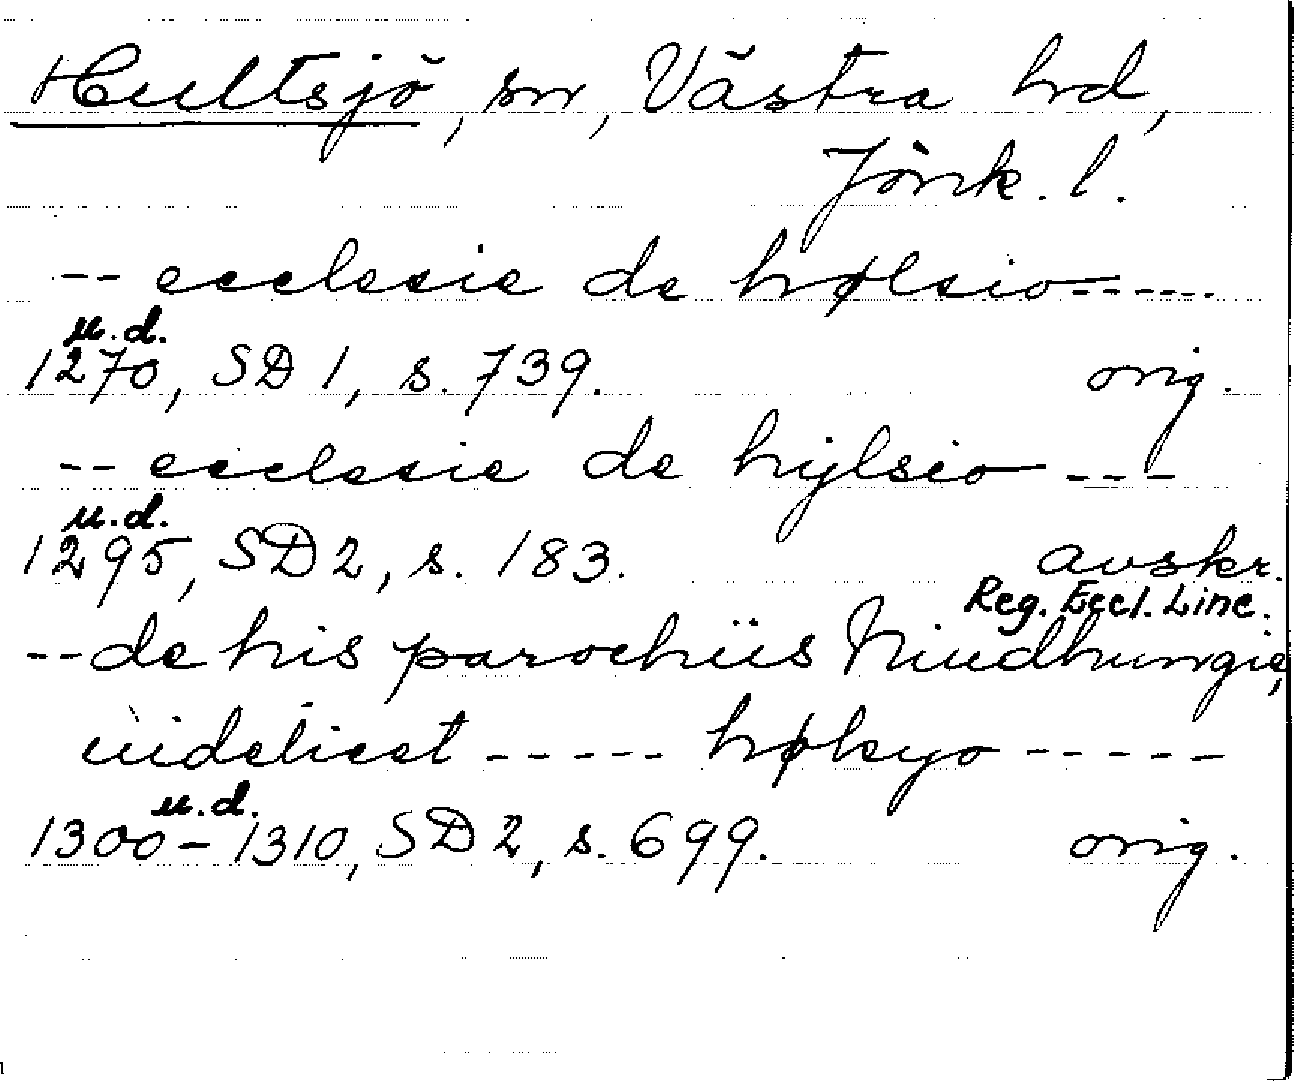 Hultsjö, sn, Västra hd,
Jönk. l.
-- ecclesie de hølsio-----
u.d.
1270, SD 1, s. 739. orig.
-- ecclesie de hylsio ---
u.d.
1295, SD 2, s. 183. avskr.
Reg. Eccl. Linc.
-- de his parochiis Niudhungie,
uidelicet ----- høksyo -----
u.d.
1300-1310, SD 2, s. 699. orig.